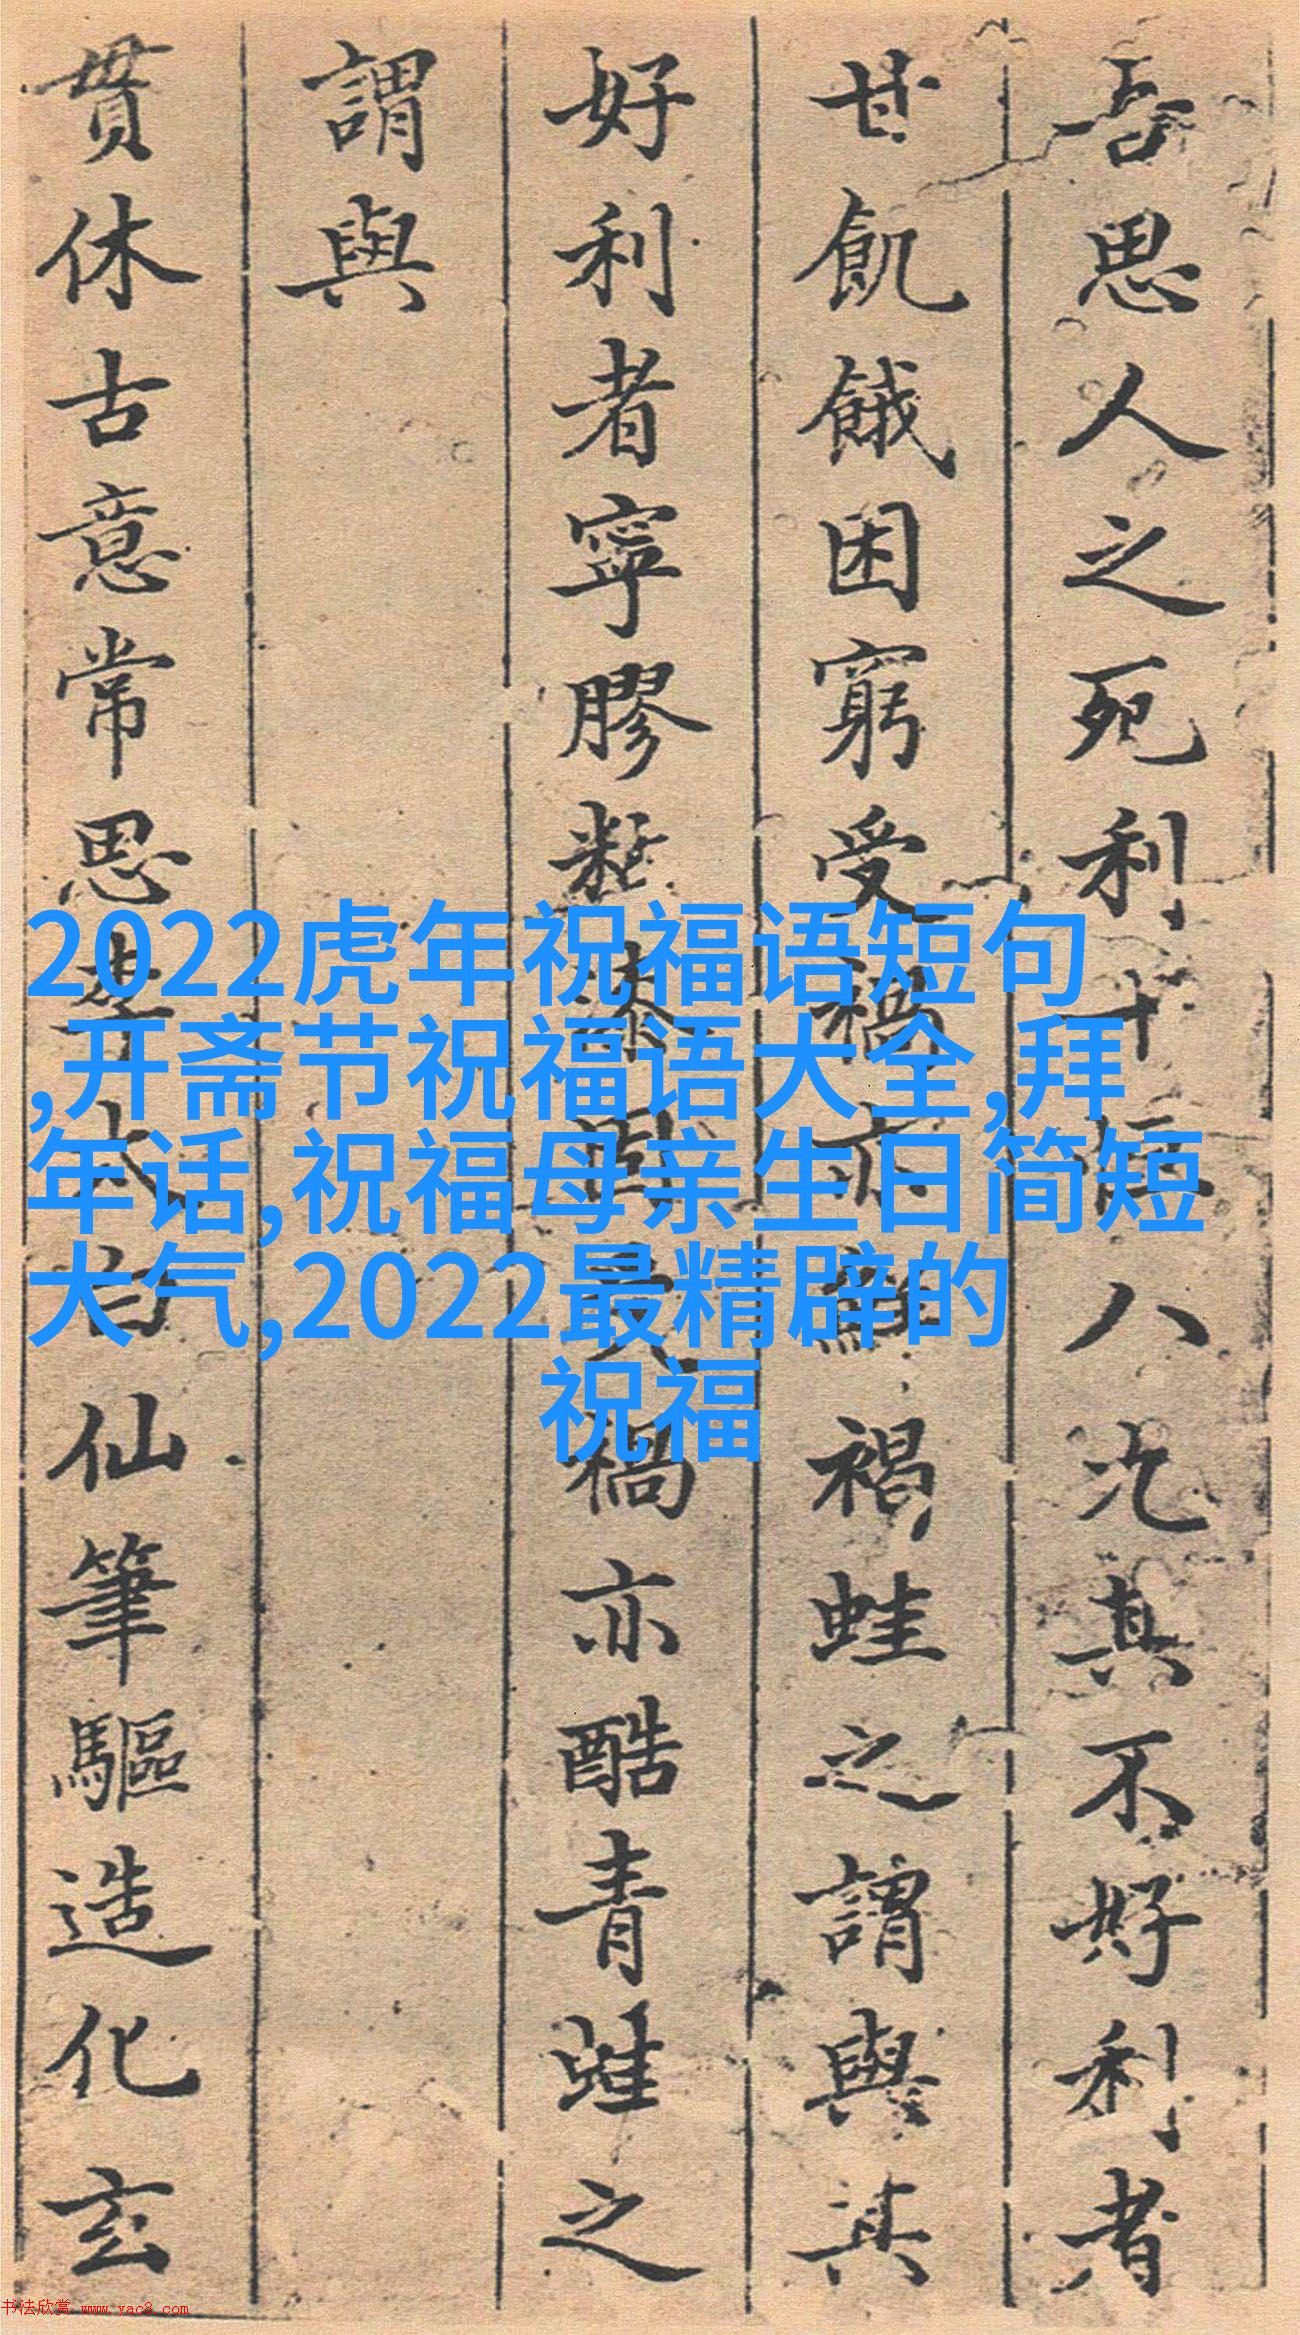 吾思人之死利十恒八九其不好利者
甘飢餓困窮受禍亦
褐蛙之謂與其
好利者寧膠
禍亦酷青蛙之
謂與
貫休古意常思李太白仙筆驅造化玄
2022虎年祝福语短句
,开斋节祝福语大全,拜
年话,祝福母亲生日简短
大气,2022最精辟的
祝福
书法欣赏 www.yac8.com